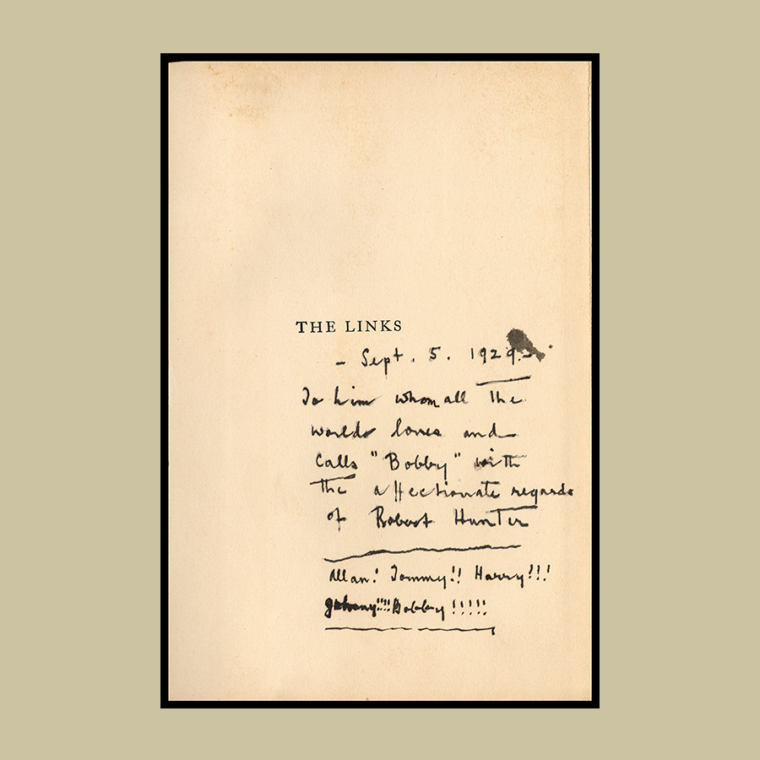 THE LINKS
- Sept. 5. 1929.-
To him whom all the
world loves and
calls "Bobby" with
the affectionate regards
of Robert Hunter
Allan! Tommy!! Harry!!!
Johnny!!!! Bobby!!!!!